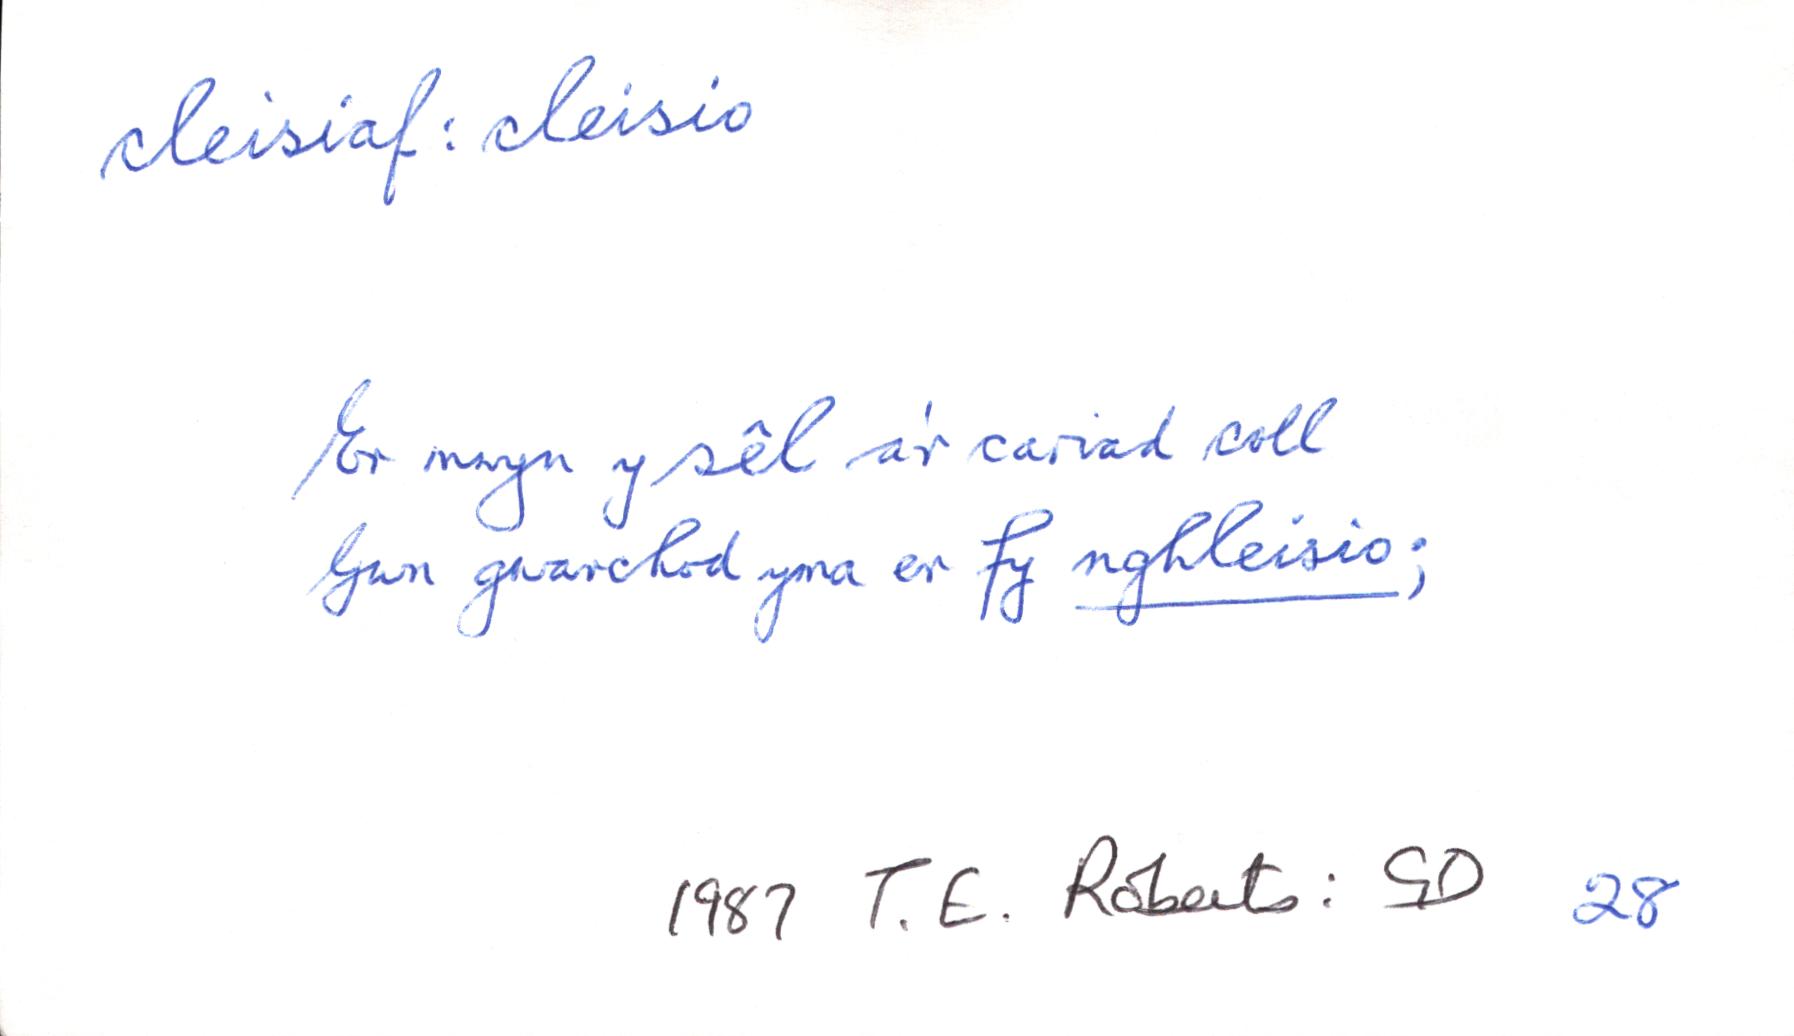 cleisiaf: cleisio
Er mwyn y sêl a'r cariad coll
Gwn gwarchod yma er fy nghleisio;
1987 T. E. Roberts: GD 28